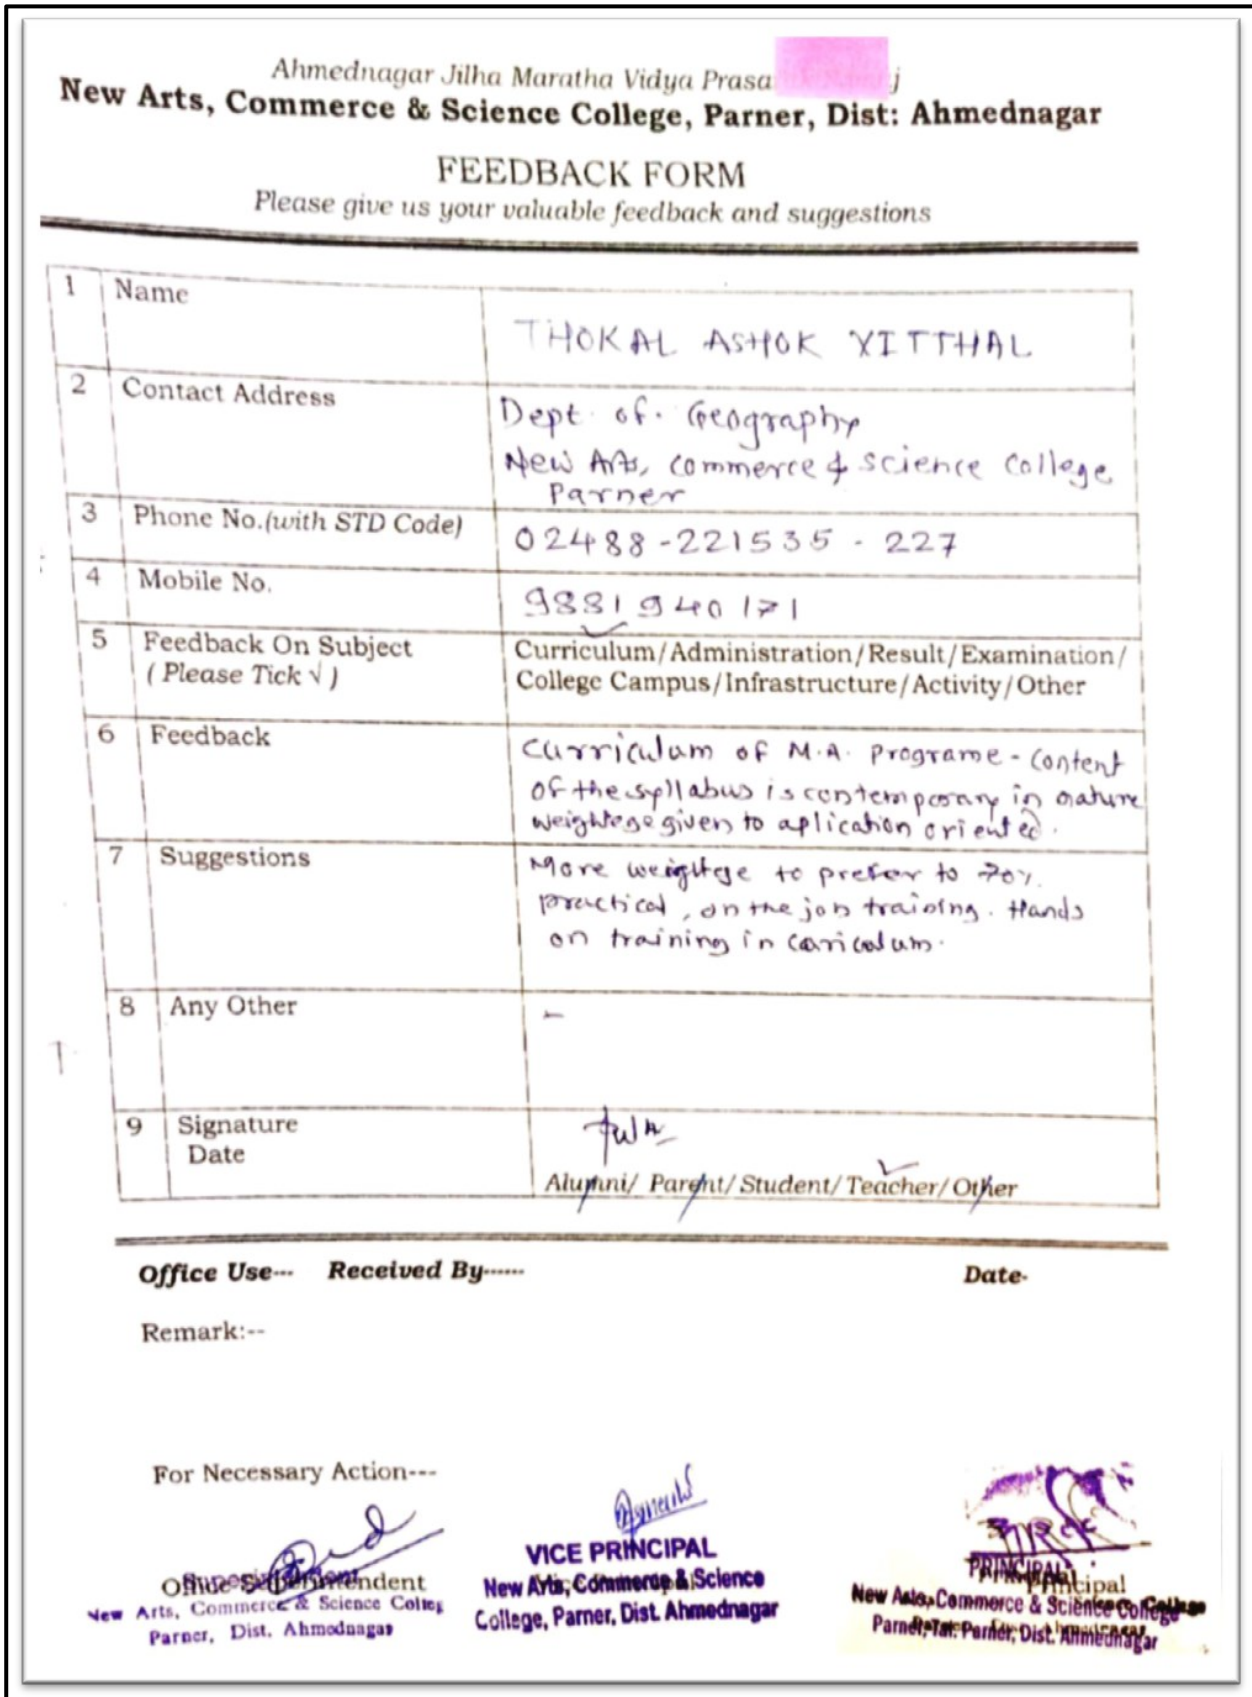 Ahmednagar Jilha Maratha Vidya Prasa
New Arts, Commerce & Science College, Parner, Dist: Ahmednagar
FEEDBACK FORM
Please give us your valuable feedback and suggestions
1 Name
THOKAL ASHOK VITTHAL
2 Contact Address
Dept. of. Geography
New Arts, commerce & science college
Parner
3 Phone No.(with STD Code)
02488-221535 - 227
4 Mobile No.
9881940171
5 Feedback On Subject
( Please Tick √ )
Curriculum/Administration/Result/Examination/
College Campus/Infrastructure/Activity/Other
6 Feedback
Curriculum of M.A. programe - content
of the syllabus is contemporary in nature
weightege given to aplication oriented.
7 Suggestions
More weightege to prefer to 70%
practical, on the job training. Hands
on training in
8 Any Other
-
9 Signature
Date
Alumni/ Parent/ Student/ Teacher/ Other
Office Use--- Received By------ Date-
Remark:--
For Necessary Action---
Office Superintendent
New Arts, Commerce & Science Colleg
Parner, Dist. Ahmednagar
VICE PRINCIPAL
New Arts, Commerce & Science
College, Parner, Dist. Ahmednagar
PRINCIPAL
Principal
New Arts, Commerce & Science College
Parner, Tal. Parner, Dist. Ahmednagar